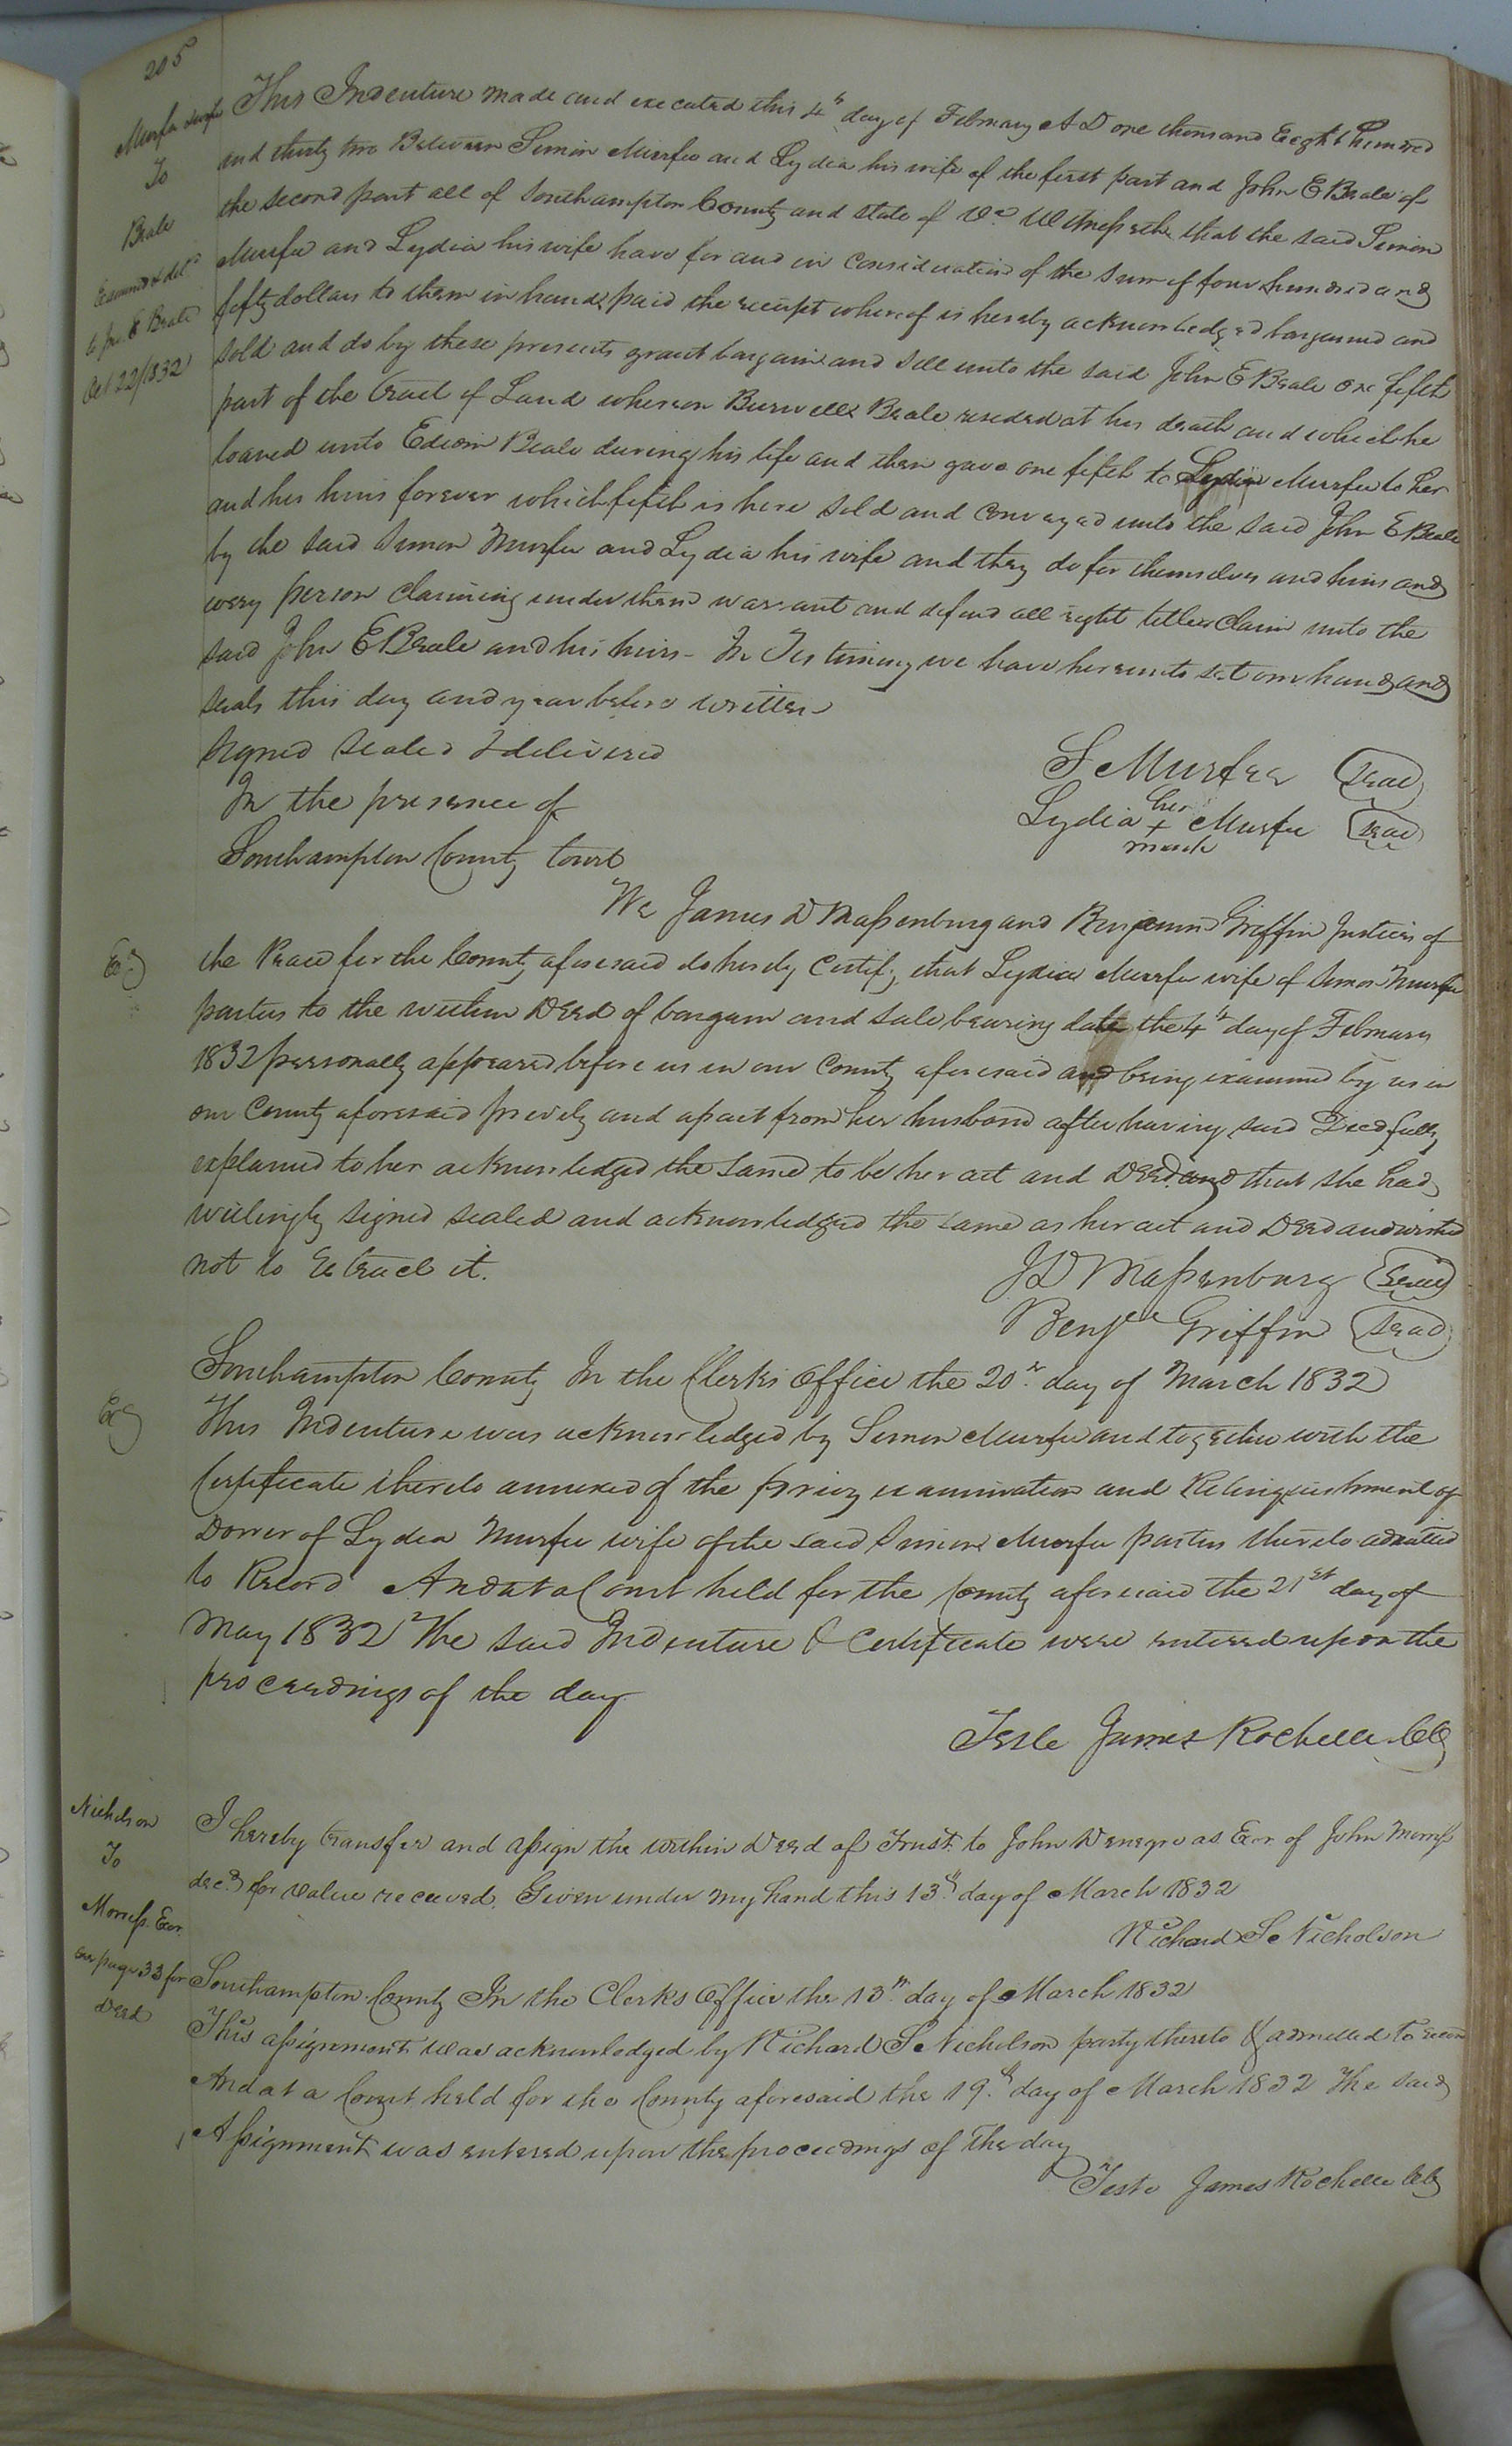 205
Murfee &wife
To
Beale
Examined & deld
to Jno. E Beale
Oct 22/1832
This Indenture made and executed this 4th day of February A D one thousand Eight Hundred
and thirty two Between Simon Murfee and Lydia his wife of the first part and John E Beale of
the second part all of Southampton County and state of Va. Witnesseth that the said Simon
Murfee and Lydia his wife have for and in consideration of the sum of four hundred and
fifty dollars to them in hand paid the receipt whereof is hereby acknowledged bargained and
sold and do by these presents grant bargain and sell unto the said John E Beale one fifth
part of the tract of Land whereon Burwell Beale resided at his death and which he
loaned unto Edwin Beale during his life and then gave one fifth to Lydia Murfee to her
and her heirs forever which fifth is here sold and conveyed unto the said John E Beale
by the said Simon Murfee and Lydia his wife and they do for themselves and heirs and
every person claiming under them warrant and defend all right title & claim unto the
said John E Beale and his heirs - In Testimony we have hereunto set our hand and
seals this day and year before written
Signed sealed & delivered
In the presence of
S Murfee Seal
Lydia her + mark Murfee Seal
Southampton County Court
We James D Massenburg and Benjamin Griffin Justices of
the Peace for the County aforesaid do hereby Certify that Lydia Murfee wife of Simon Murfee
parties to the within Deed of bargain and sale bearing date the 4th day of February
1832 personally appeared before us in our County aforesaid and being examined by us in
our County aforesaid privily and apart from her husband after having said Deed fully
explained to her acknowledged the same to be her act and Deed and that she had
willingly signed sealed and acknowledged the same as her act and Deed and wished
not to retract it.
J D Massenburg Seal
Benja Griffin Seal
Southampton County In the Clerks Office the 20th day of March 1832
This Indenture was acknowledged by Simon Murfee and together with the
Certificate thereto annexed of the privy examination and Relinquishment of
Dower of Lydia Murfee wife of the said Simon Murfee parties thereto admitted
to Record And at a Court held for the County aforesaid the 21st day of
May 1832 The said Indenture & Certificate were entered upon the
proceedings of the day
Teste James Rochelle Clk
Nicholson
To
Morriss Exor.
See page 33 for
Deed
I hereby transfer and assign the within Deed of Trust to John Denegre as Exor of John Morriss
decd. for value received. Given under my hand this 13th day of March 1832
Richard S Nicholson
Southampton County In the Clerks Office the 13th day of March 1832
This assignment was acknowledged by Richard S Nicholson party thereto & admitted to record
And at a Court held for the County aforesaid the 19th day of March 1832 The said
Assignment was entered upon the proceedings of the day
Teste James Rochelle Clk